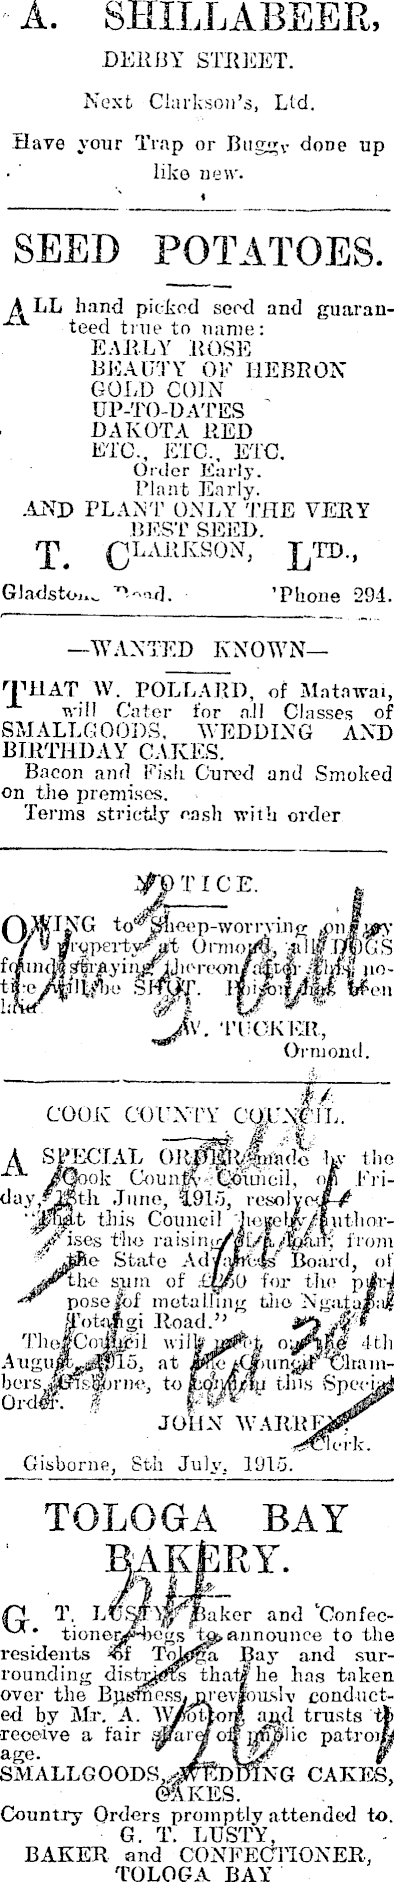 A. SHILLABEER,
DERBY STREET.
Next Clarkson's, Ltd.
Have your Trap or Buggy done up
like new.
SEED POTATOES.
ALL hand picked seed and guaran-
teed true to name:
EARLY ROSE
BEAUTY OF HEBRON
GOLD COIN
UP-TO-DATES
DAKOTA RED
ETC., ETC., ETC.
Order Early.
Plant Early.
AND PLANT ONLY THE VERY
BEST SEED.
T. CLARKSON, LTD.,
Gladstone Road. 'Phone 294.
—WANTED KNOWN—
THAT W. POLLARD, of Matawai,
will Cater for all Classes of
SMALLGOODS, WEDDING AND
BIRTHDAY CAKES.
Bacon and Fish Cured and Smoked
on the premises.
Terms strictly cash with order
NOTICE.
OWING to Sheep-worrying on my
property at Ormond, all DOGS
found straying thereon after this no-
tice will be SHOT. Poison has been
laid.
W. TUCKER,
Ormond.
COOK COUNTY COUNCIL.
A SPECIAL ORDER made by the
Cook County Council, on Fri-
day, June, 1915, resolved—
"That this Council hereby author-
ises the raising of a loan, from
the State Advances Board, of
the sum of £250 for the pur-
pose of metalling the Ngatapa-
Totangi Road."
The Council will meet on the 4th
August, 1915, at the Council Cham-
bers, Gisborne, to confirm this Special
Order.
JOHN WARREN,
Clerk.
Gisborne, 8th July, 1915.
TOLOGA BAY
BAKERY.
G. T. LUSTY, Baker and Confec-
tioner, begs to announce to the
residents of Tologa Bay and sur-
rounding districts that he has taken
over the Business, previously conduct-
ed by Mr. A. Wootton, and trusts to
receive a fair share of public patron-
age.
SMALLGOODS, WEDDING CAKES,
CAKES.
Country Orders promptly attended to.
G. T. LUSTY,
BAKER and CONFECTIONER,
TOLOGA BAY